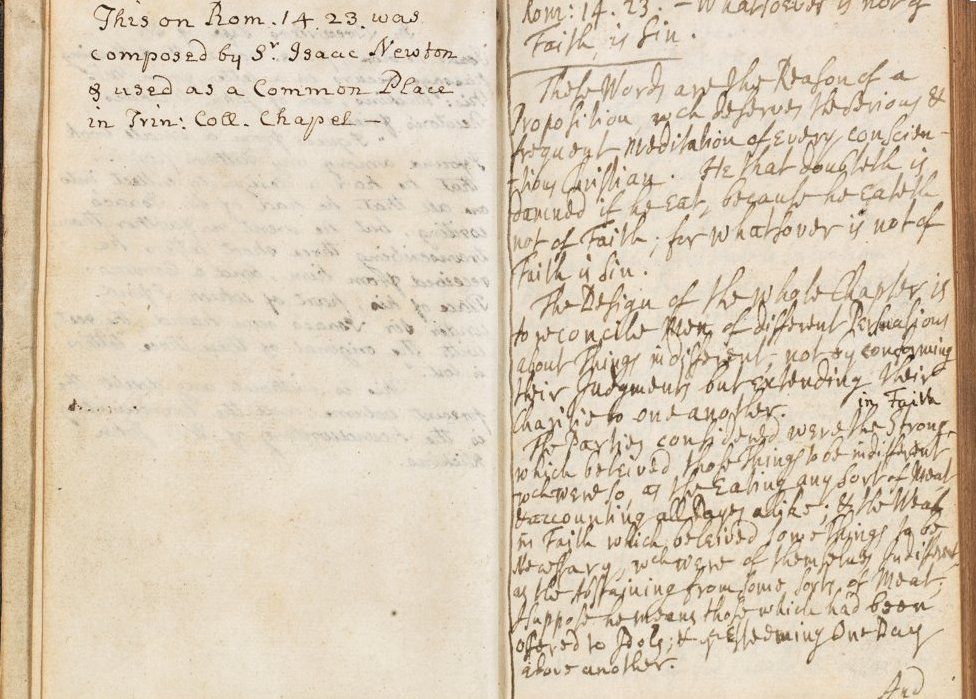 This on Rom. 14 23 was
composed by Sr. Isaac Newton
& used as a Common Place
in Trin: Coll. Chapel —
Rom: 14. 23. – Whatsoever is not of
Faith, is Sin.
These Words are the Reason of a
Proposition, wch deserves the serious &
frequent Meditation of Every conscien-
tious Christian. He that doubteth is
damned if he Eat, because he Eateth
not of Faith; for whatsover is not of
Faith is Sin.
The Design of the whole Chapter is
to reconcile Men of different Persuasions
about Things indifferent, not by conforming
their Judgments but Extending their
Charitie to one another.
in Faith
The Parties considered were the Strong
which beleived those Things to be indifferent
wch were so, as the Eating any Sort of Meat
& accounting all Dayes alike; & the Weak
in Faith which beleived some Things to be
Necessary, wch were of themselves Indifferent
as the Abstaining from some Sorts of Meat,
suppose he means those which had been
offered to Idols; & Esteeming One Day
above another.
And